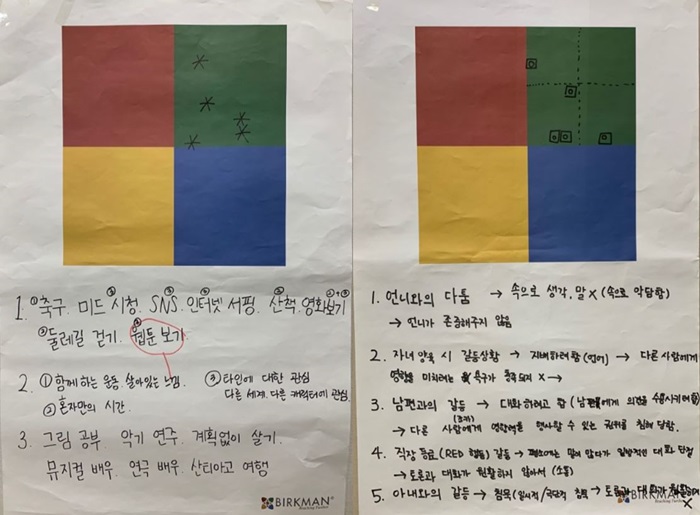 1. ①축구. 미드 시청. SNS. 인터넷 서핑. 산책. 영화보기
둘레길 걷기. 웹툰 보기
2. ① 함께하는 운동. 살아있는 느낌.
② 혼자만의 시간.
③ 타인에 대한 관심
다른 세계. 다른 캐릭터에 관심.
3. 그림 공부. 악기 연주. 계획없이 살기.
뮤지컬 배우. 연극 배우. 산티아고 여행
BIRKMAN
1. 언니와의 다툼 → 속으로 생각. 말 X (속으로 악담함)
→ 언니가 존중해주지 않음
2. 자녀 양육 시 갈등상황 → 지배하려함 (언어) → 다른 사람에게
영향을 미치려는 욕구가 충족되지 X →
3. 남편과의 갈등 → 대화하려고 함 (남편에게 의견을
→ 다른 사람에게 영향력을 행사할 수 있는 권위를 침해 당함.
4. 직장 동료 (RED 행동) 갈등 → 평소에는 말이 많다가 일방적인 대화 단절
→ 토론과 대화가 원활하지 않아서 (소통)
5. 아내와의 갈등 → 침묵 (일시적/극단적 침묵 → 토론과 대화가
X
BIRKMAN